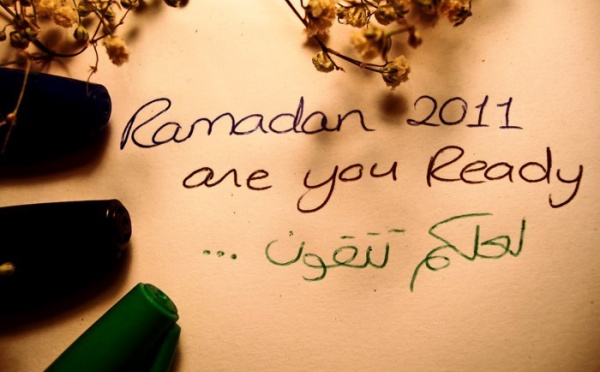 Ramadan 2011
are you Ready
لعلكم تتقون ...